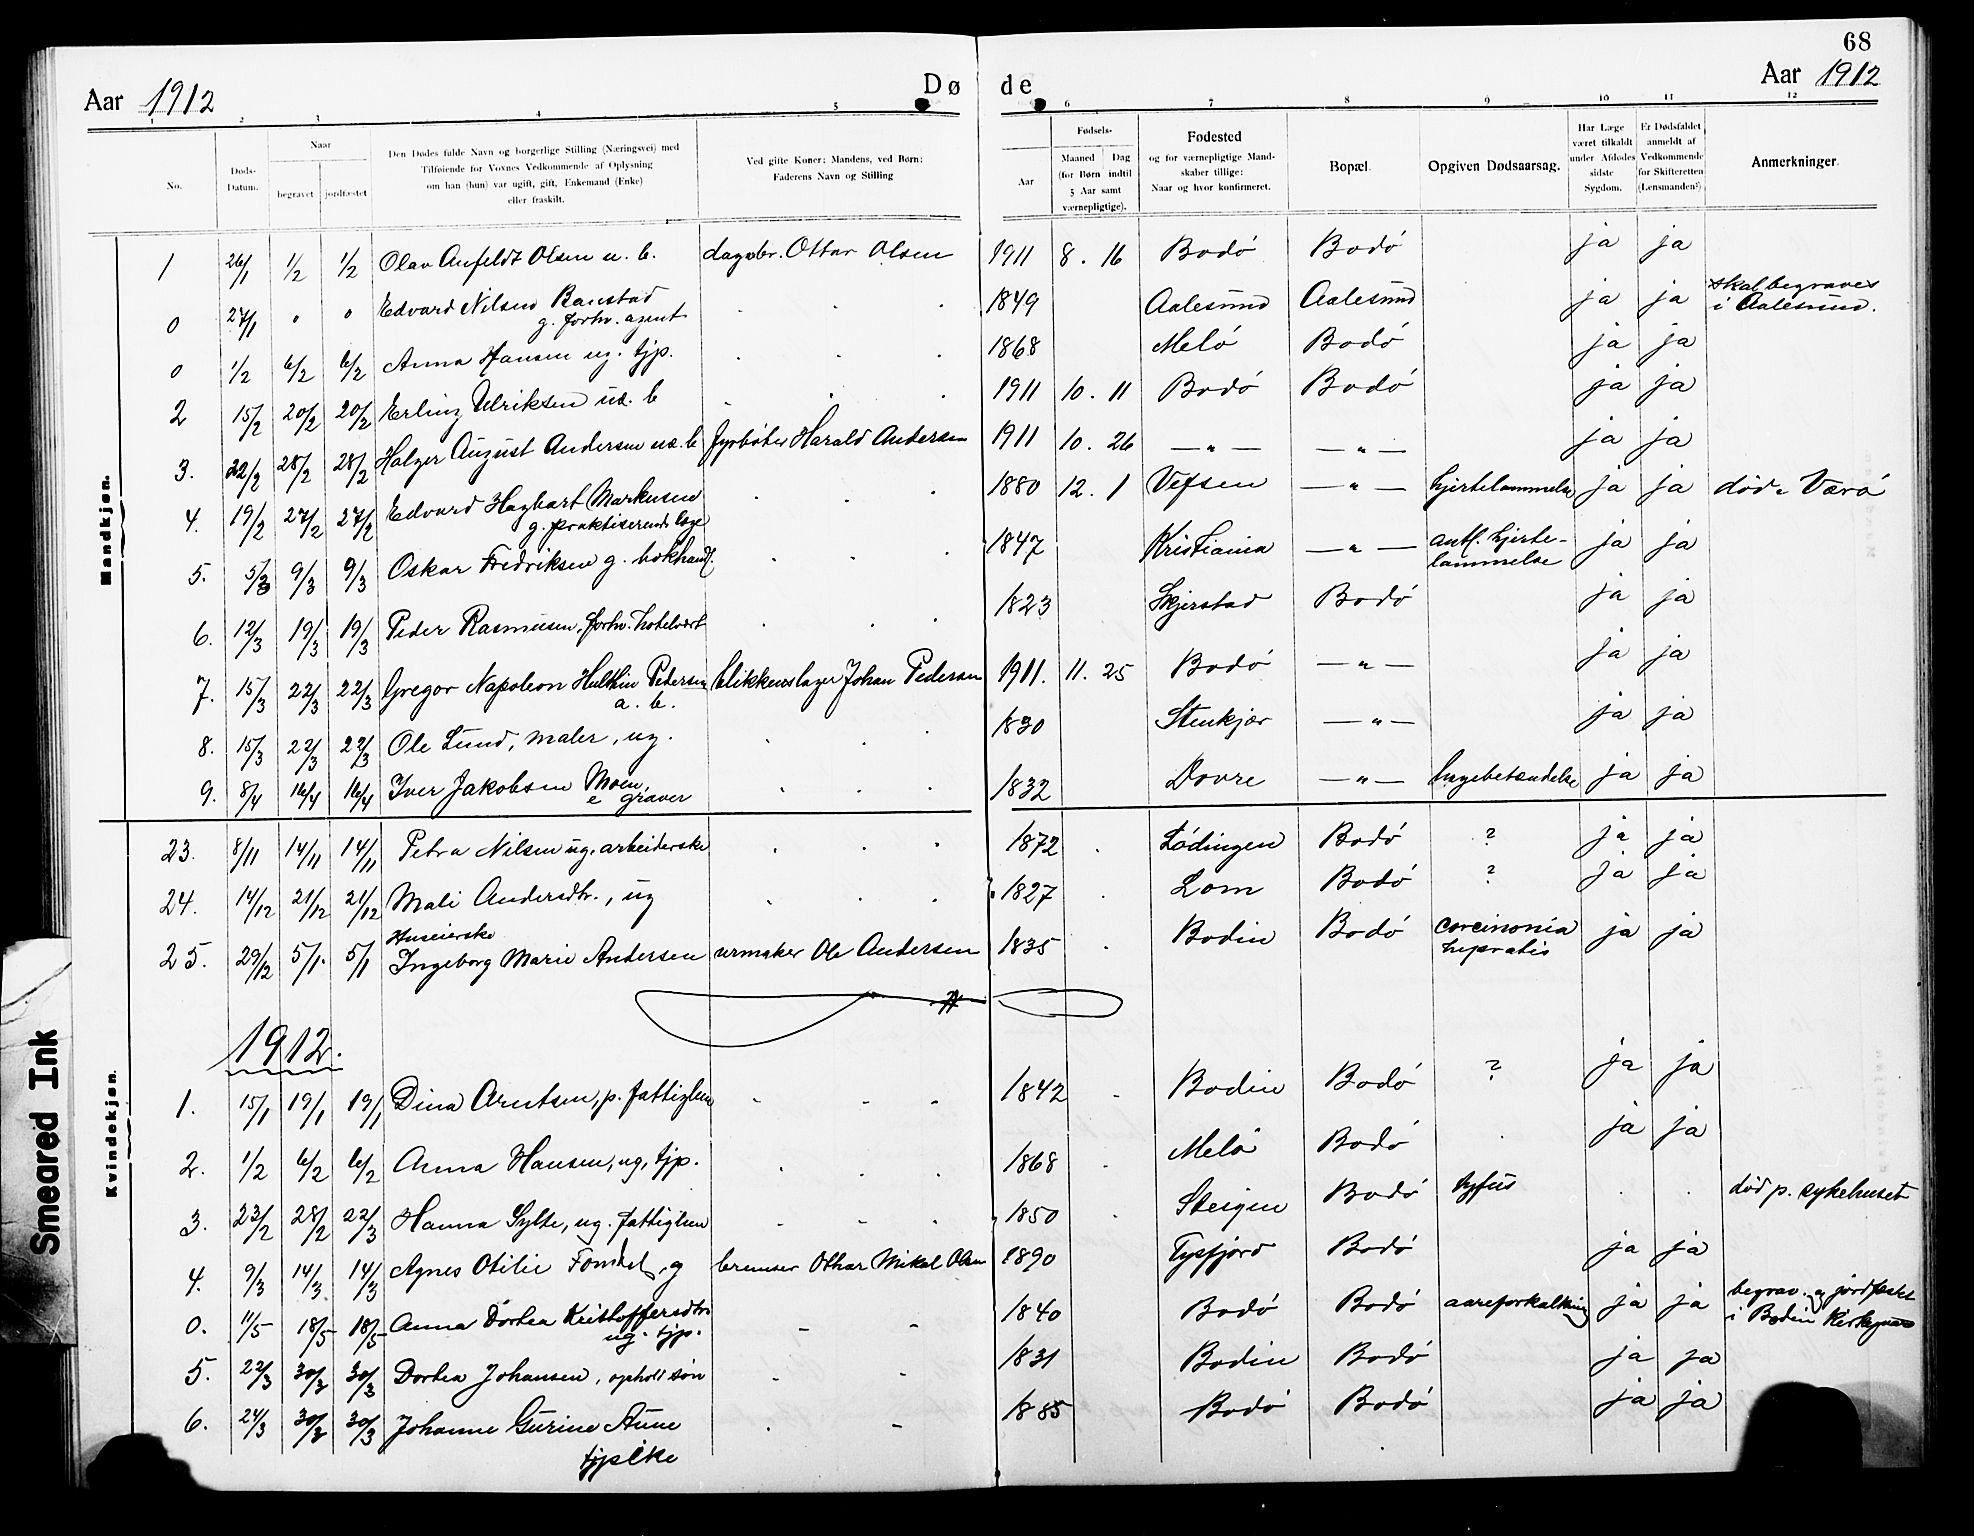 68
Aar 1912 Døde Aar 1912
1 2 3 4 5 6 7 8 9 10 11 12
No.
Døds-
Datum.
Naar
begravet jordfæstet
Den Dødes fulde Navn og borgerlige Stilling (Næringsvei) med
Tilføiende for Voxnes Vedkommende af Oplysning
om han (hun) var ugift, gift, Enkemand (Enke)
eller fraskilt.
Ved gifte Koner: Mandens, ved Børn:
Faderens Navn og Stilling
Aar
Fødsels-
Maaned Dag
(for Børn indtil
5 Aar samt
værnepligtige).
Fødested
og for værnepligtige Mand-
skaber tillige:
Naar og hvor konfirmeret.
Bopæl.
Opgiven Dødsaarsag.
Har Læge
været tilkaldt
under Afdødes
sidste
Sygdom.
Er Dødsfaldet
anmeldt af
Vedkommende
for Skifteretten
(Lensmanden?)
Anmerkninger.
Mandkjøn.
1 26/1 1/2 1/2 Olav Anfeldt Olsen u. b. dagarb. Ottar Olsen 1911 8. 16 Bodó Bodó ja ja
0 27/1 " " Edvard Nilsen Banstad 1849 Aalesund Aalesund ja ja skal begraves
g. forhv. agent i Aalesund.
0 1/2 6/2 6/2 Anna Hansen ug. tjp. 1868 Meló Bodó ja ja
2 15/2 20/2 20/2 Erling Ulriksen u. b 1911 10. 11 Bodó Bodó ja ja
3. 22/2 28/2 28/2 Holger August Andersen b fyrbøter Harald Andersen 1911 10. 26 — " — — " — ja ja
4. 19/2 27/2 27/2 Edvard Hagbart Markusen 1880 12. 1 Vefsen — " — hjertelammelse ja ja død i Væró
g. praktiserende læge
5. 5/3 9/3 9/3 Oskar Fredriksen g. bokhandl. 1847 Kristiania — " — antl. hjerte-
lammelse ja ja
6. 12/3 19/3 19/3 Peder Rasmusen, forhv. hotelvært 1823 Skjerstad Bodó ja ja
7. 15/3 22/3 22/3 Gregor Napoleon Hulthin Pedersen blikkenslager Johan Pedersen 1911. 11. 25 Bodó — " — ja ja
u. b.
8. 15/3 22/3 22/3 Ole Lund, maler, ug. 1830 Stenkjær — " — ja ja
9. 8/4 16/4 16/4 Iver Jakobsen Moen, 1832 Dovre — " — lugebetændelse ja ja
e graver
Kvindekjøn.
23. 8/11 14/11 14/11 Petra Nilsen ug. arbeiderske 1872 Lódingen Bodó ? ja ja
24. 14/12 21/12 21/12 Mali Andersdtr., ug 1827 Lom Bodó ? ja ja
Huseierske
25. 29/12 5/1. 5/1 Ingeborg Marie Andersen urmaker Ole Andersen 1835 Bodin Bodó carcinonia
hepratis ja ja
1912.
1. 15/1 19/1 19/1 Dina Arntsen, p. fattiglem 1842 Bodin Bodó ? ja ja
2. 1/2 6/2 6/2 Anna Hansen, ug, tjp. 1868 Meló Bodó ja ja
3. 23/2 28/2 22/3 Hanna Sylte, ug. fattiglem 1850 Steigen Bodó tyfus død p. sykehuset
4. 9/3 14/3 14/3 Agnes Otilie , g bremser Othar Mikal Olsen 1890 Tysfjord Bodó ja ja
0. 11/5 18/5 18/5 Anna Dortea Kristoffersdtr 1840 Bodó Bodó aareforkalkning ja ja begrav. og jordfæstet
ug. tjp. i Bodin Kirkegaard
5. 22/3 30/3 30/3 Dortea Johansen, ophold søn 1831 Bodin Bodó ja ja
6. 24/3 30/3 30/3 Johanne Gurine Aune 1885 Bodó Bodó ja ja
tjpike
Smeared Ink